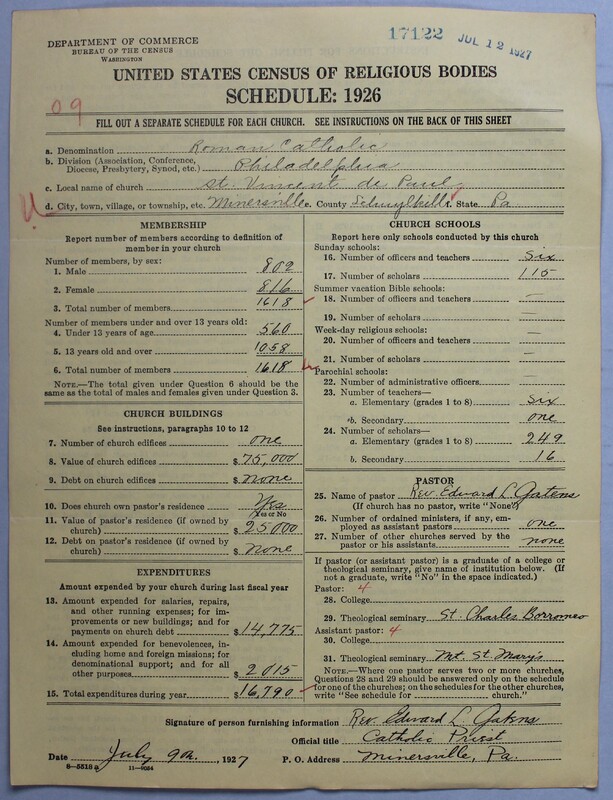 17122 JUL 12 1927
DEPARTMENT OF COMMERCE
BUREAU OF THE CENSUS
WASHINGTON
UNITED STATES CENSUS OF RELIGIOUS BODIES
SCHEDULE: 1926
09
FILL OUT A SEPARATE SCHEDULE FOR EACH CHURCH. SEE INSTRUCTIONS ON THE BACK OF THIS SHEET
a. Denomination Roman Catholic
b. Division (Association, Conference,
Diocese, Presbytery, Synod, etc.) Philadelphia
c. Local name of church St. Vincent de Paul
d. City, town, village, or township, etc. Minersville e. County Schuylkill f. State Pa.
MEMBERSHIP
Report number of members according to definition of
member in your church
Number of members, by sex:
1. Male 802
2. Female 816
3. Total number of members 1618
Number of members under and over 13 years old:
4. Under 13 years of age 560
5. 13 years old and over 1058
6. Total number of members 1618
NOTE.—The total given under Question 6 should be
the same as the total of males and females given under Question 3.
CHURCH BUILDINGS
See instructions, paragraphs 10 to 12
7. Number of church edifices one
8. Value of church edifices $ 75,000
9. Debt on church edifices $ none
10. Does church own pastor's residence Yes
Yes or No
11. Value of pastor's residence (if owned by
church) $ 25000
12. Debt on pastor's residence (if owned by
church) $ none
EXPENDITURES
Amount expended by your church during last fiscal year
13. Amount expended for salaries, repairs,
and other running expenses; for im-
provements or new buildings; and for
payments on church debt $ 14,775
14. Amount expended for benevolences,
including home and foreign missions; for
denominational support; and for all
other purposes $ 2015
15. Total expenditures during year $ 16,790
CHURCH SCHOOLS
Report here only schools conducted by this church
Sunday schools:
16. Number of officers and teachers Six
17. Number of scholars 115
Summer vacation Bible schools:
18. Number of officers and teachers —
19. Number of scholars —
Week-day religious schools:
20. Number of officers and teachers —
21. Number of scholars —
Parochial schools:
22. Number of administrative officers —
23. Number of teachers—
a. Elementary (grades 1 to 8) Six
*b. Secondary one
24. Number of scholars—
a. Elementary (grades 1 to 8) 249
b. Secondary 16
PASTOR
25. Name of pastor Rev. Edward L. Gatens
(If church has no pastor, write "None")
26. Number of ordained ministers, if any, em-
ployed as assistant pastors one
27. Number of other churches served by the
pastor or his assistants none
If pastor (or assistant pastor) is a graduate of a college or
theological seminary, give name of institution below. (If
not a graduate, write "No" in the space indicated.)
Pastor: 4
28. College
29. Theological seminary St. Charles Borromeo
Assistant pastor: 4
30. College
31. Theological seminary Mt. St. Mary's
NOTE.—Where one pastor serves two or more churches,
Questions 28 and 29 should be answered only on the schedule
for one of the churches; on the schedules for the other churches,
write "See schedule for church."
Signature of person furnishing information Rev. Edward L. Gatens
Official title Catholic Priest
Date July 9th, 1927 P. O. Address Minersville, Pa.
8—5518 a 11—9064